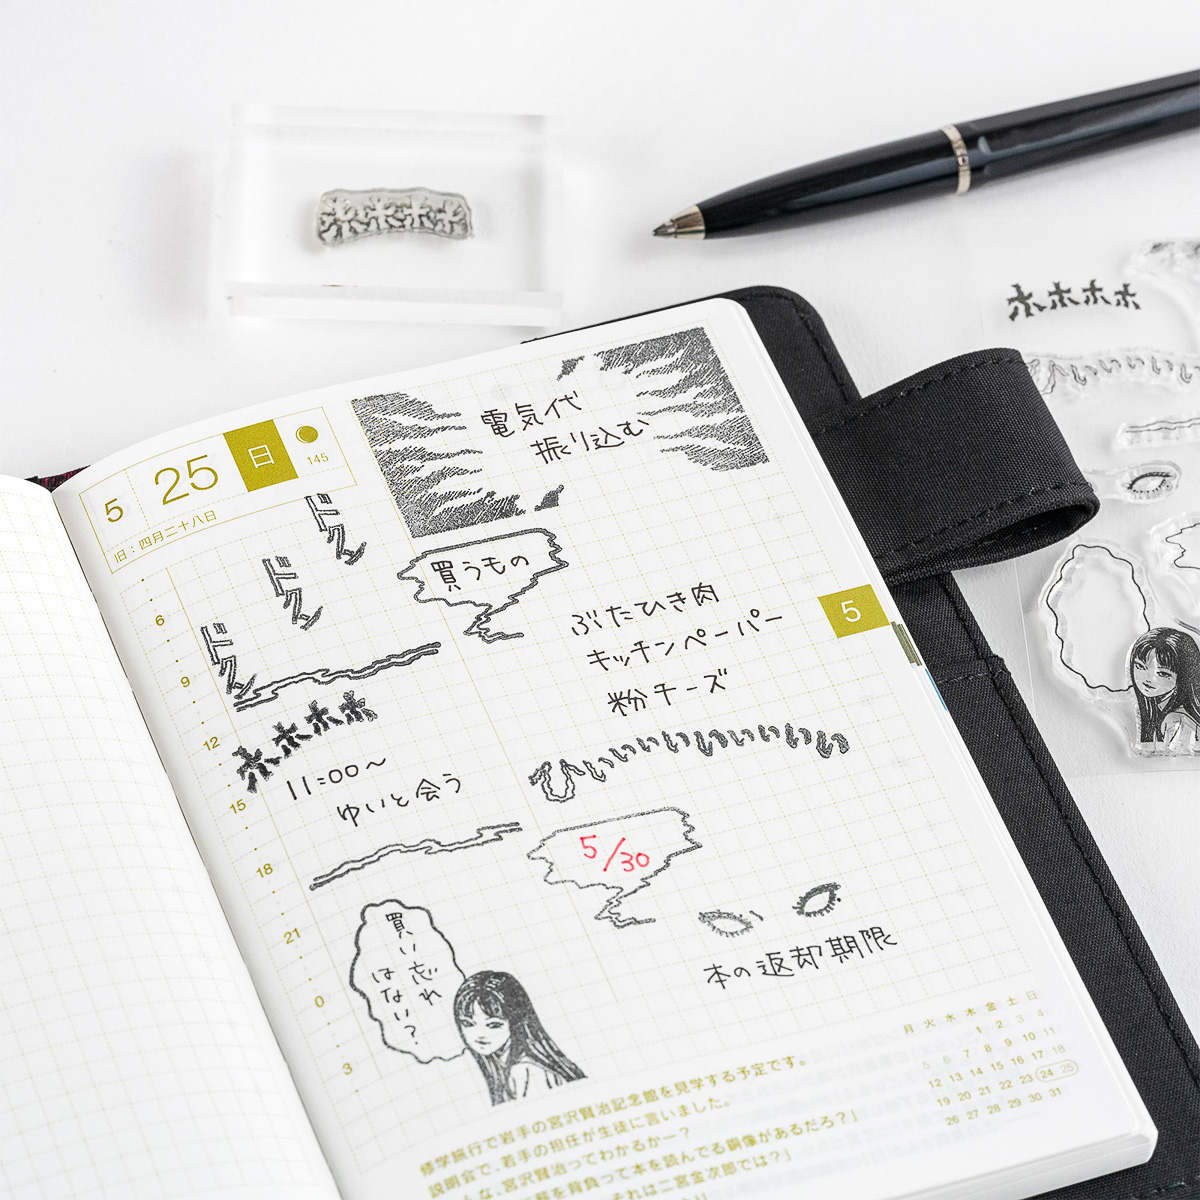 ホホホホ
5 25 日
145
旧：四月二十八日
電気代
振り込む
ドクン
ドクン
ドクン
買うもの
ぶたひき肉
キッチンペーパー
粉チーズ
5
6
9
12
15
18
21
0
3
ホホホホ
11:00〜
ゆいと会う
ひいいいいいいいいい
5/30
本の返却期限
買い忘れ
はない？
月 火 水 木 金 土 日
1 2 3 4
5 6 7 8 9 10 11
12 13 14 15 16 17 18
19 20 21 22 23 24 25
26 27 28 29 30 31
修学旅行で岩手の宮沢賢治記念館を見学する予定です。
説明会で、若手の担任が生徒に言いました。
な、宮沢賢治ってわかるかー？
を背負って本を読んでる銅像があるだろ？」
それは二宮金次郎では？」